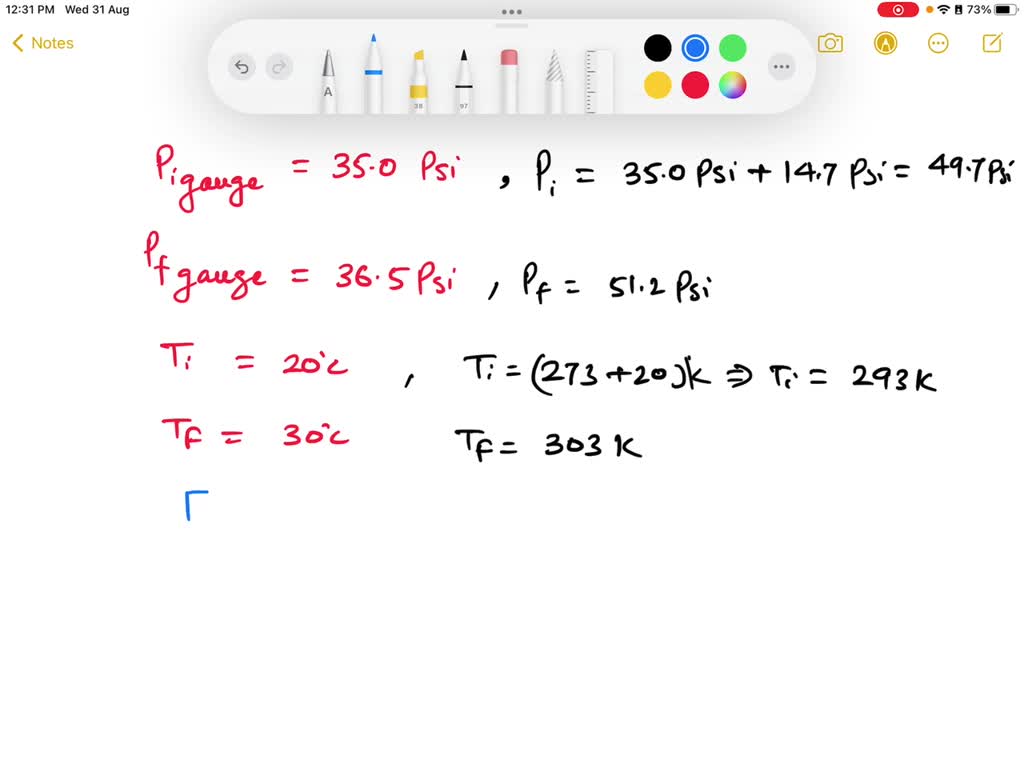 12:31 PM Wed 31 Aug
73%
Notes
A
38
97
Pi gauge = 35.0 Psi , Pi = 35.0 Psi + 14.7 Psi = 49.7 Psi
Pf gauge = 36.5 Psi , Pf = 51.2 Psi
Ti = 20°c , Ti = (273 + 20)k ⇒ Ti = 293 K
Tf = 30°c Tf = 303 K